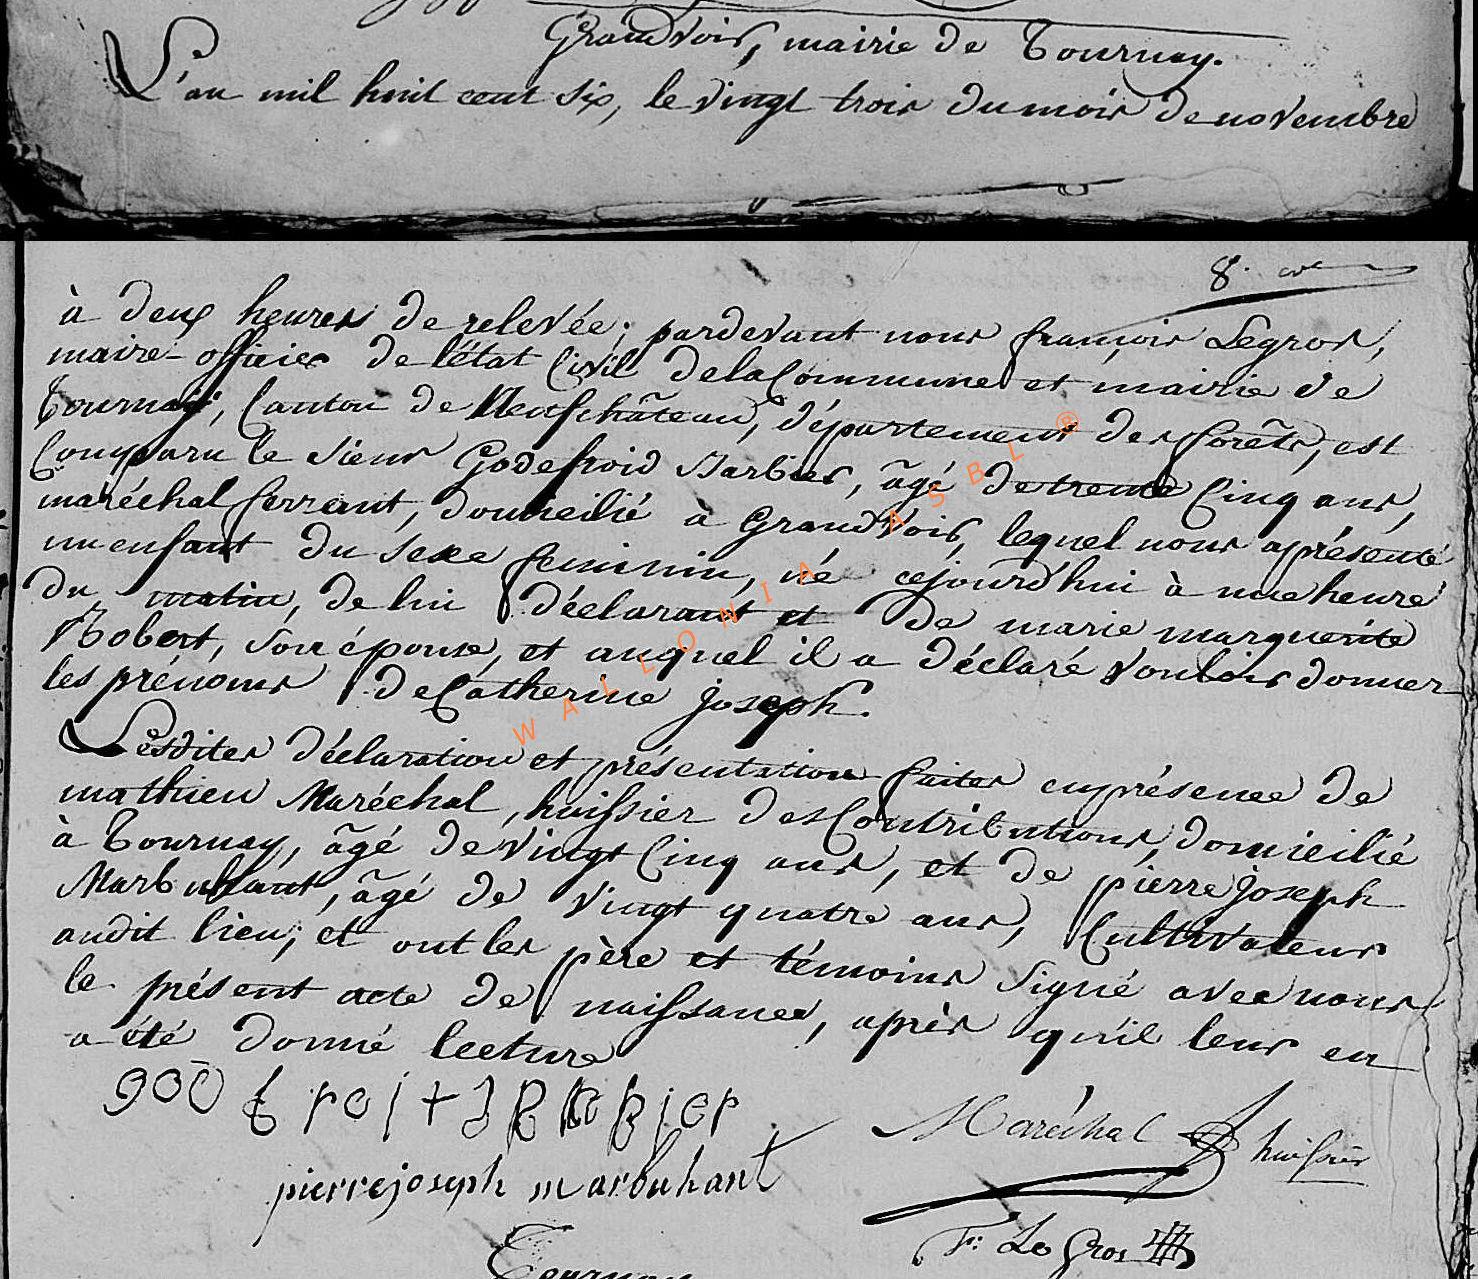 Grandvoir, mairie de Tournay.
L'an mil huit cent six, le vingt trois du mois de novembre
8.
à deux heures de relevée; pardevant nous françois Legros,
maire-officier de l'état Civil de la Commune et mairie de
Tournay, Canton de Neufchâteau, département des forêts, est
Comparu le sieur Godefroid Barbier, âgé de trente Cinq ans,
maréchal ferrant, domicilié à Grandvoir, lequel nous a présenté
un enfant du sexe féminin, né cejourd'hui à une heure
du matin, de lui déclarant et de marie marguerite
Robert, son épouse, et auquel il a déclaré vouloir donner
les prénoms de Catherine joseph.
Lesdites déclaration et présentation faites en présence de
mathieu Maréchal, huissier des Contributions, domicilié
à Tournay, âgé de vingt Cinq ans, et de pierre joseph
Marbuhant, âgé de vingt quatre ans, Cultivateur
audit lieu; et ont les père et témoins signé avec nous
le présent acte de naissance, après qu'il leur en
a été donné lecture
Maréchal huissier
pierre joseph marbuhant
F: Le Gros
Tournay
WALLONIA ASBL ®